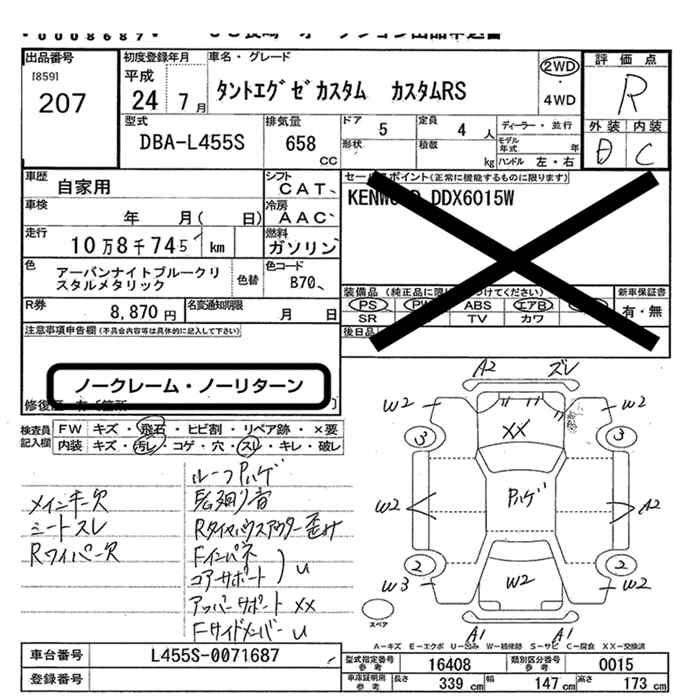 0008687
出品番号
[859]
207
初度登録年月
平成
24 7月
車名・グレード
タントエグゼカスタム カスタムRS
2WD
・
4WD
評価点
R
外装 内装
C
型式
DBA-L455S
排気量
658
CC
ドア 5
形状
定員 4 人
積載 kg
ディーラー・並行
モデル年式 年
ハンドル 左・右
車歴
自家用
シフト
CAT、
車検
年 月( 日)
冷房
AAC、
走行
10万8千745 km
燃料
ガソリン
色
アーバンナイトブルークリ
スタルメタリック
色替
色コード
B70、
R券
8,870円
名変通知期限
月 日
セールスポイント(正常に機能するものに限ります)
DDX6015W
装備品
PS ABS エアB
SR TV カワ
新車保証書
有・無
後日品
注意事項申告欄(不具合内容等は具体的に記入して下さい)
ノークレーム・ノーリターン
修復歴
検査員
記入欄
FW キズ・飛石・ヒビ割・リペア跡・×要
内装 キズ・汚レ・コゲ・穴・スレ・キレ・破レ
ルーフハゲ
メインキー欠
シートスレ
Rワイパー欠
足廻り音
Rタイヤハウスアウター歪み
Fインパネ
コアサポート
U
アッパーサポート XX
Fサイドメンバー U
A2 ズレ
W2 W2
3 XX 3
W2 ハゲ A2
2 W2 2
W3 W2
A1 A1
スペア
A-キズ E-エクボ U-凹み W-補修跡 S-サビ C-腐食 XX-交換済
車台番号
L455S-0071687
登録番号
型式指定番号
参考
16408
類別区分番号
参考
0015
車庫証明用
参考
長さ 339 cm 幅 147 cm 高さ 173 cm